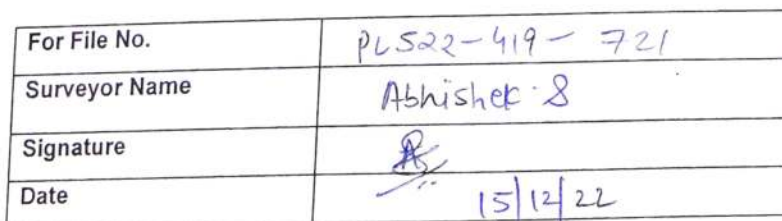 For File No. PL522-419-721
Surveyor Name Abhishek S
Signature
Date 15/12/22